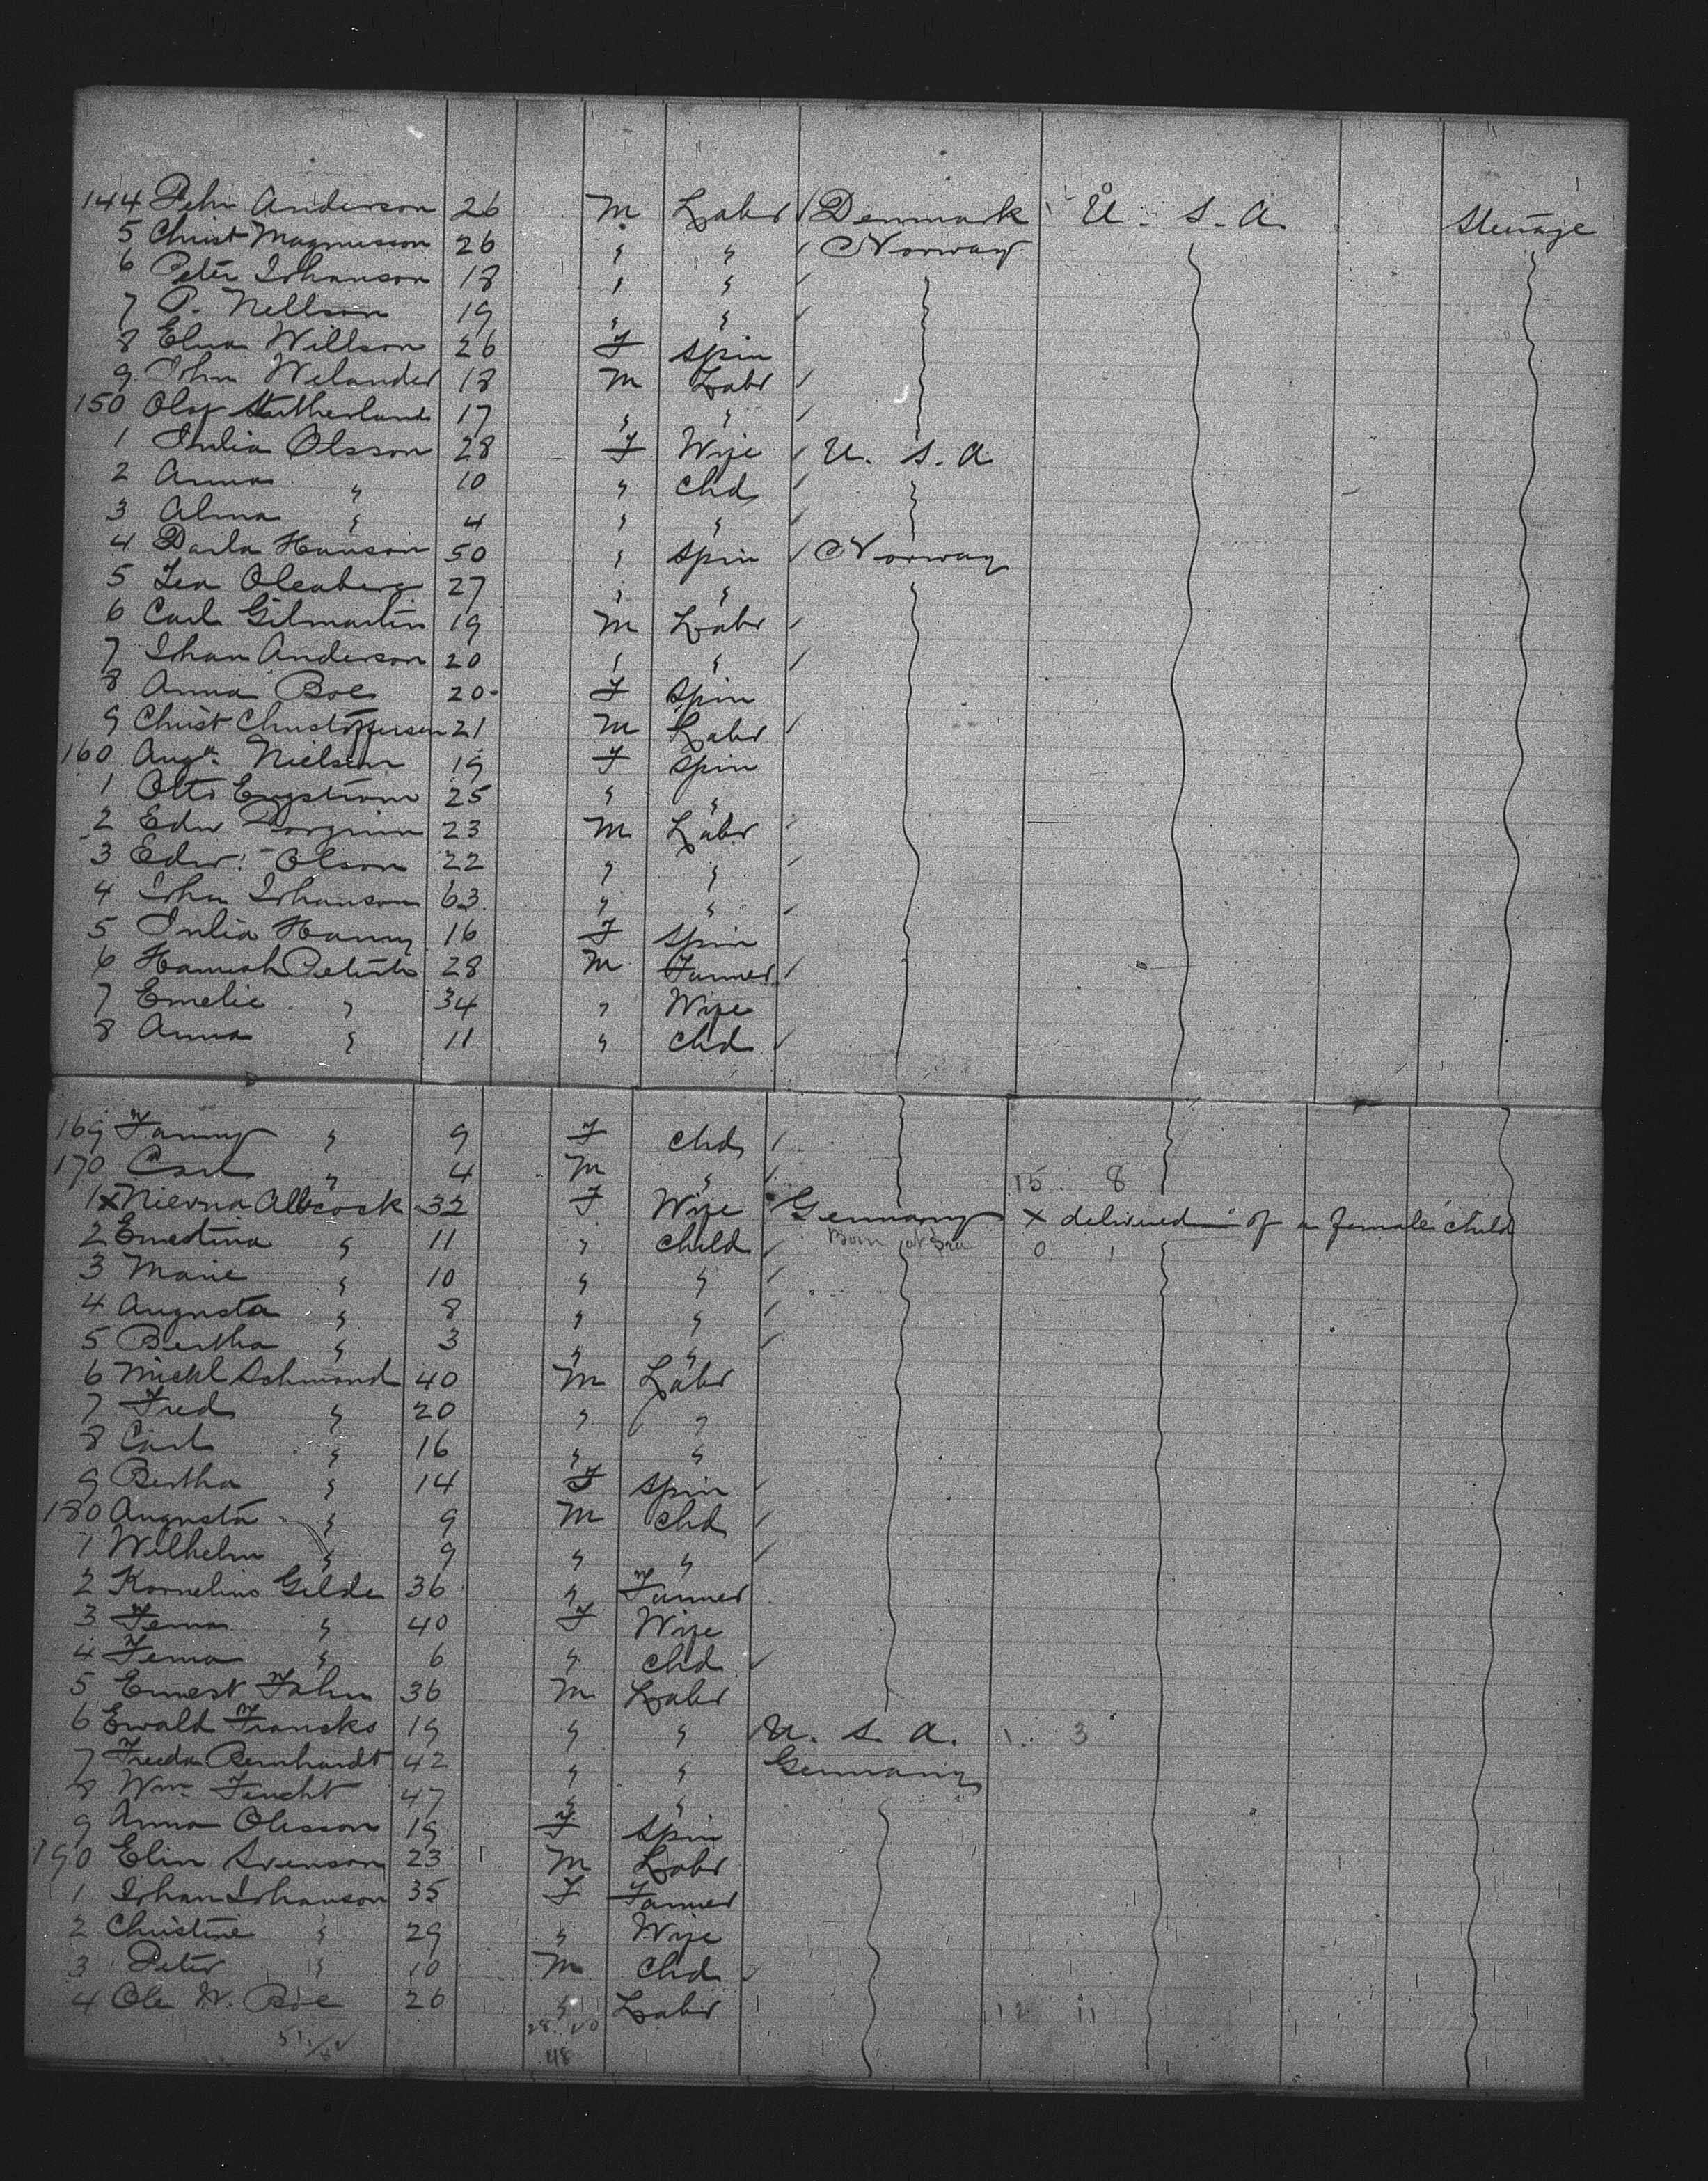 144 Pehr Anderson 26 M Labr Denmark U. S. A Steerage
5 Christ Magnusson 26 " " Norway
6 Peter Johanson 18 " "
7 P. Nellson 19 " "
8 Elna Willson 26 F Spin
9 John Welander 18 M Labr
150 Olof Sutherland 17 " "
1 Julia Olsson 28 F Wife U. S. A
2 Anna " 10 " Chd
3 Alma " 4 " "
4 Hanson 50 " Spin Norway
5 Lea Oleaberg 27 " "
6 Carl Gilmartin 19 M Labr
7 Johan Anderson 20 " "
8 Anna Boe 20 F Spin
9 Christ Christoffersen 21 M Labr
160 Auga Nielson 19 F Spin
1 Otto Engstrom 25 " "
2 Edw 23 M Labr
3 Edw. Olson 22 " "
4 John Johanson 63 " "
5 Julia Hanny 16 F Spin
6 Hannah 28 M Farmer
7 Emelie " 34 " Wife
8 Anna " 11 " Chd
169 Fanny " 9 F Chd
170 Carl " 4 M " 15 8
1 x Albcock 32 F Wife Germany x delivered of a female child
2 Ernestina " 11 " Child Born at Sea 0 1
3 Marie " 10 " "
4 Augusta " 8 " "
5 Bertha " 3 " "
6 Michl Schmond 40 M Labr
7 Fred " 20 " "
8 Carl " 16 " "
9 Bertha " 14 F Spin
180 Augusta " 9 M Chd
1 Wilhelm " 9 " "
2 Kornelius Gelde 36 " Farmer
3 Fema " 40 F Wife
4 Fema " 6 " Chd
5 Ernest Fahn 36 M Labr
6 Ewald Francks 19 " " U. S. A. 1. 3
7 Freda Bernhardt 42 " " Germany
8 Wm. Feucht 47 " "
9 Anna Olsson 19 F Spin
190 Elin Svenson 23 M Labr
1 Johan Johanson 35 F Farmer
2 Christine " 29 " Wife
3 Peter " 10 M Chd
4 Ole N. Boe 26 " Labr 12 11
48